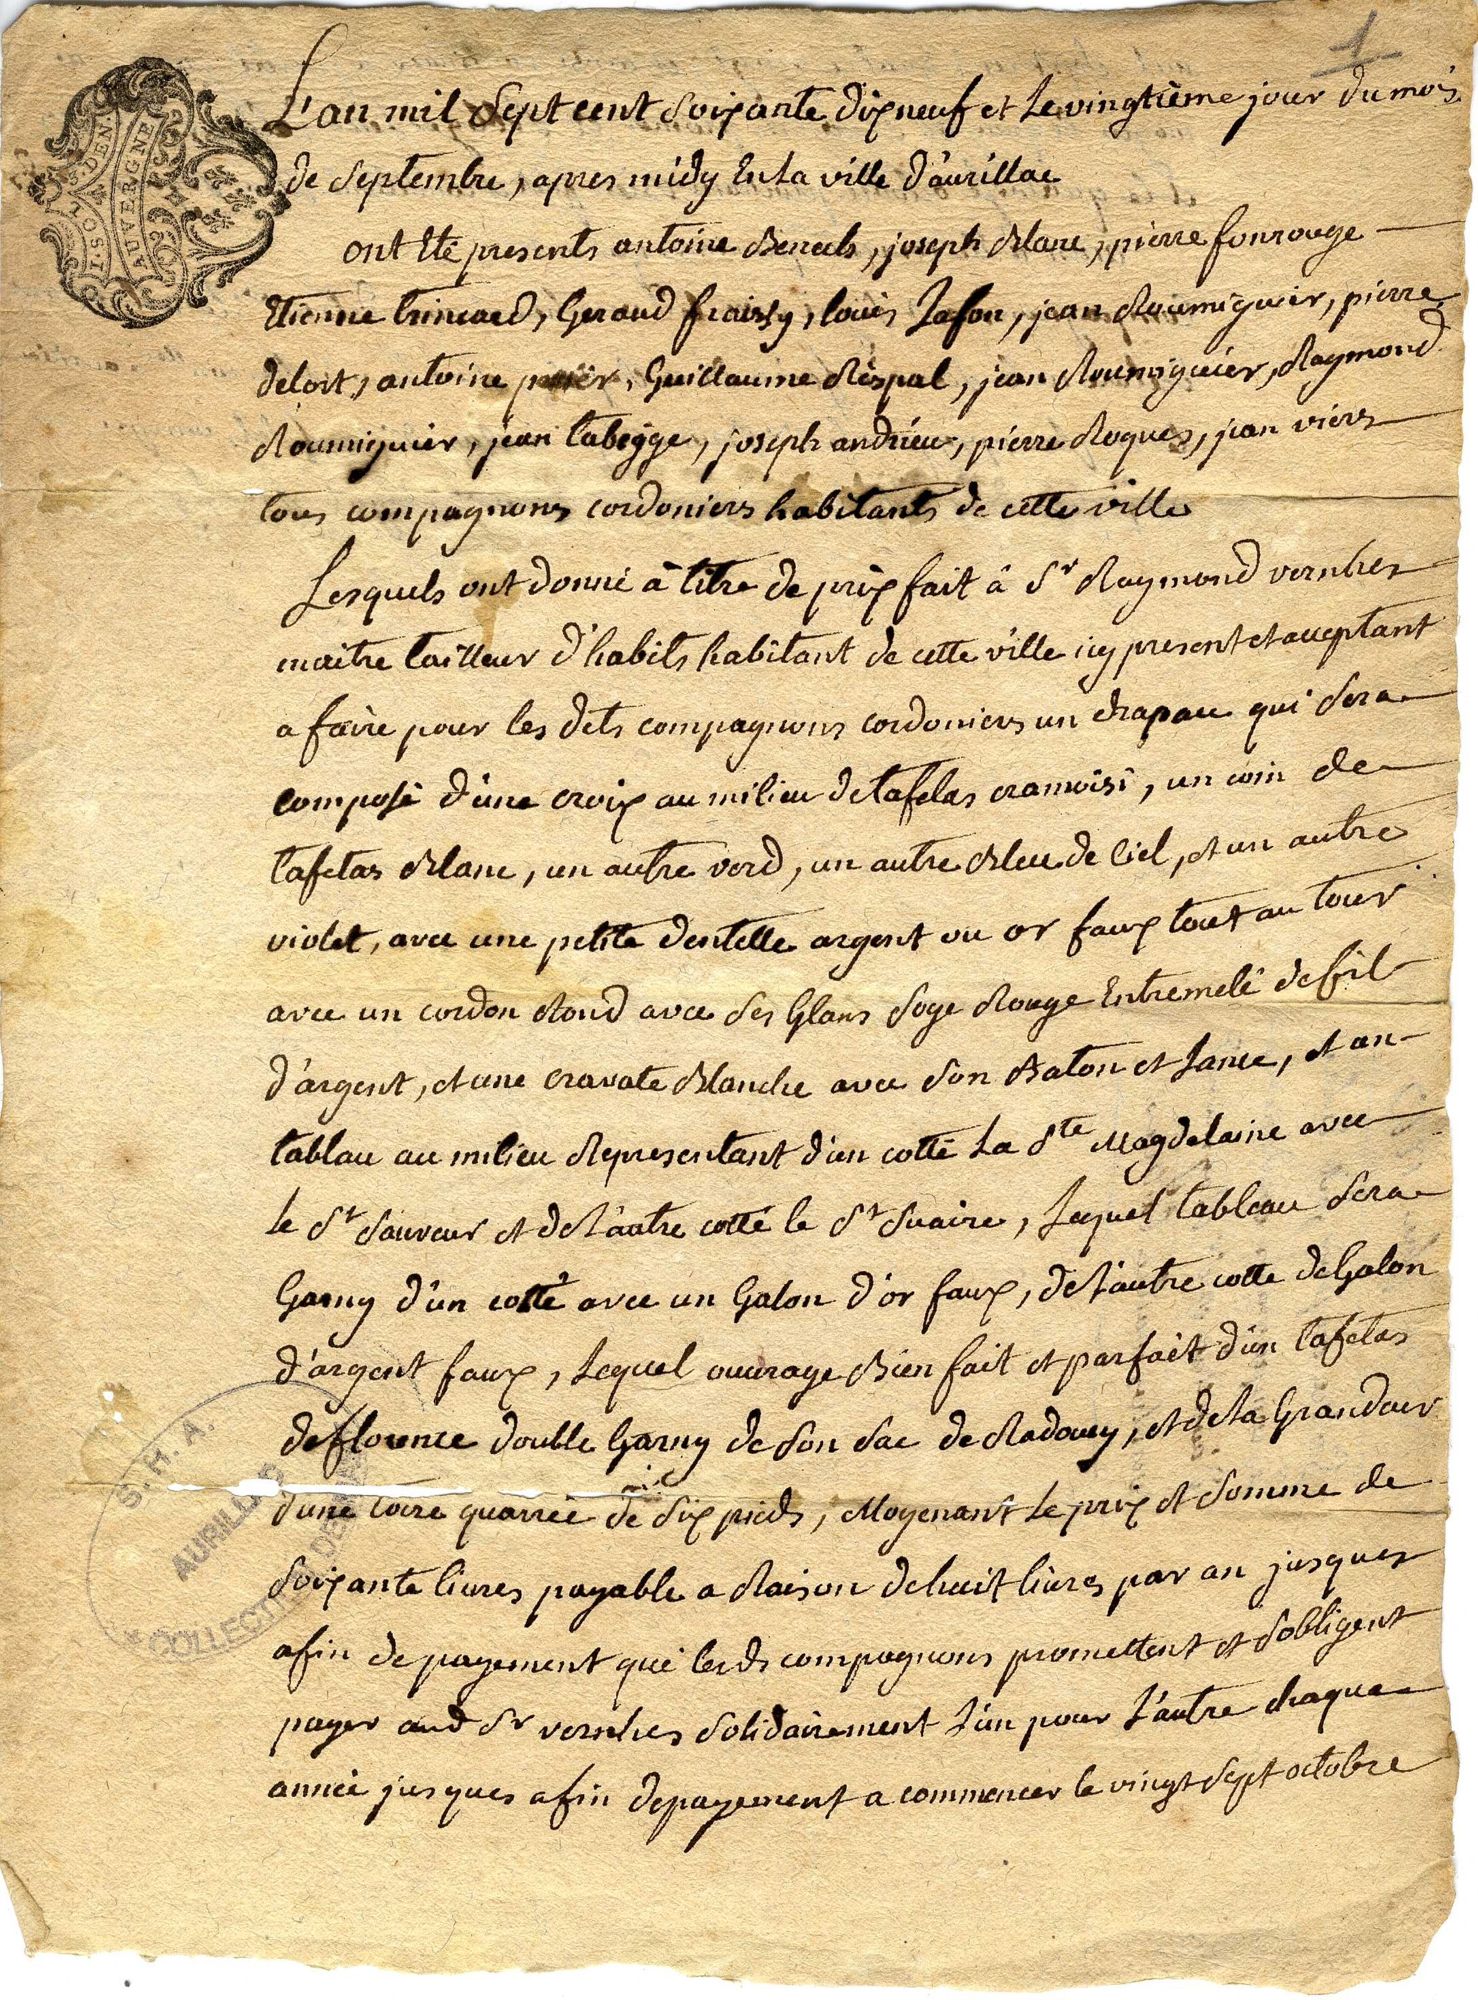 1
I. SOL 4 S. DEN.
AUVERGNE
L'an mil sept cent soixante dixneuf et le vingtième jour du mois
de septembre, apres midy en la ville d'aurillac
ont été presents antoine Benech, joseph Blanc, pierre fonrouge
Etienne trincard, Geraud fraissy, louis Lafon, jean Roumiguier, pierre
delort, antoine, Guillaume Respal, jean Roumiguier, Raymond
Roumiguier, jean labeyge, joseph andrieu, pierre Roques, jean viers
tous compagnons cordoniers habitants de cette ville
Lesquels ont donné à titre de prix fait à Sr Raymond vernhes
maitre tailleur d'habits habitant de cette ville icy present et acceptant
a faire pour les dits compagnons cordoniers un drapau qui sera
composé d'une croix au milieu de tafetas cramoisi, un coin de
tafetas Blanc, un autre verd, un autre Bleu de Ciel, et un autre
violet, avec une petite dentelle argent ou or faux tout au tour
avec un cordon Rond avec ses Glans soye Rouge Entremelé de fil
d'argent, et une cravate Blanche avec son Baton et Lance, et un
tablau au milieu Representant d'un cotté La Ste Magdelaine avec
le St sauveur et de L'autre cotté le St suaire, Lequel tableau sera
Garny d'un cotté avec un Galon d'or faux, de L'autre cotte de Galon
d'argent faux, Lequel ouvrage Bien fait et parfait d'un tafetas
de florence double Garny de son sac de Radoucy, et de la Grandeur
d'une toire quarrée de six pieds, Moyenant Le prix et somme de
soixante livres payable a Raison de huit livres par an jusques
afin de payement que lesds compagnons promettent et s'obligent
payer aud Sr vernhes solidairement L'un pour L'autre chaque
année jusques afin de payement a commencer le vingt sept octobre
S. H. A.
AURILLAC
COLLECTION DEBRIEU